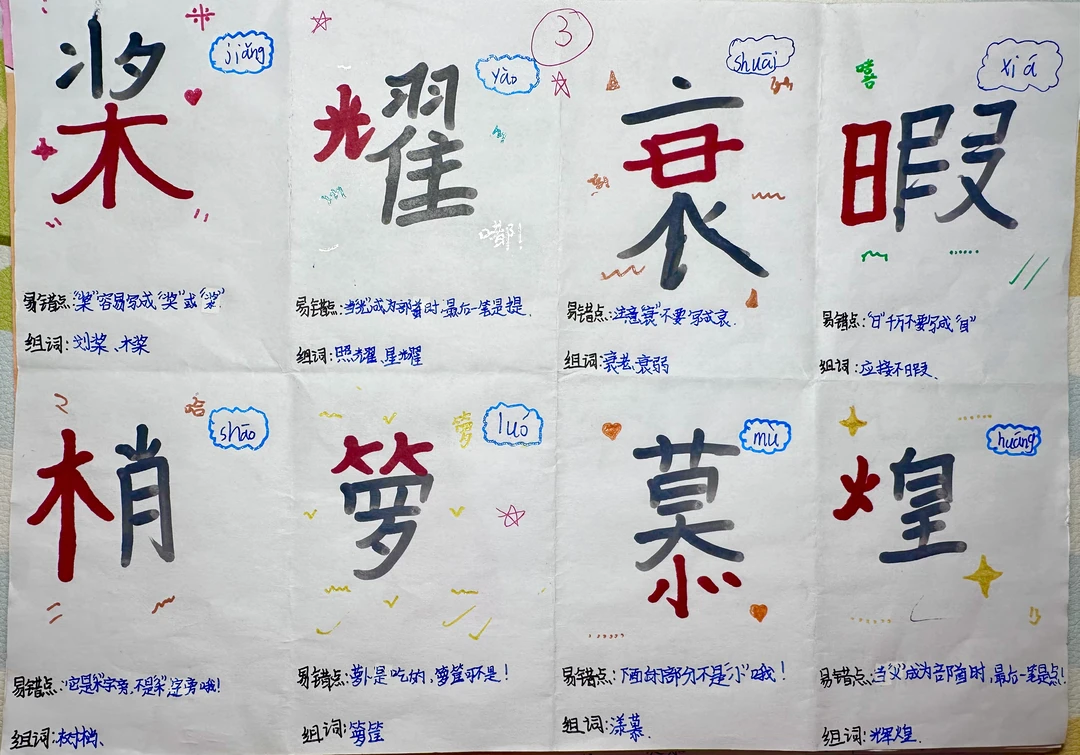 ③
jiǎng
桨
易错点:“桨”容易写成“奖”或“浆”
组词:划桨、木桨
yào
耀
嘟!
易错点:当“光”成为部首时,最后一笔是提.
组词:照耀、星耀
shuāi
衰
易错点:注意“衰”不要写成哀.
组词:衰老、衰弱
嘻
xiá
暇
易错点:“日”千万不要写成“目”
组词:应接不暇.
哈
shāo
梢
易错点:它是“木”字旁,不是“禾”字旁哦!
组词:树梢、
luó
箩
易错点:萝卜是吃的,箩筐可不是!
组词:箩筐
mù
慕
易错点:下面的部分不是“小”哦!
组词:漾慕.
huáng
煌
易错点:当“火”成为部首时,最后一笔是点!
组词:辉煌.